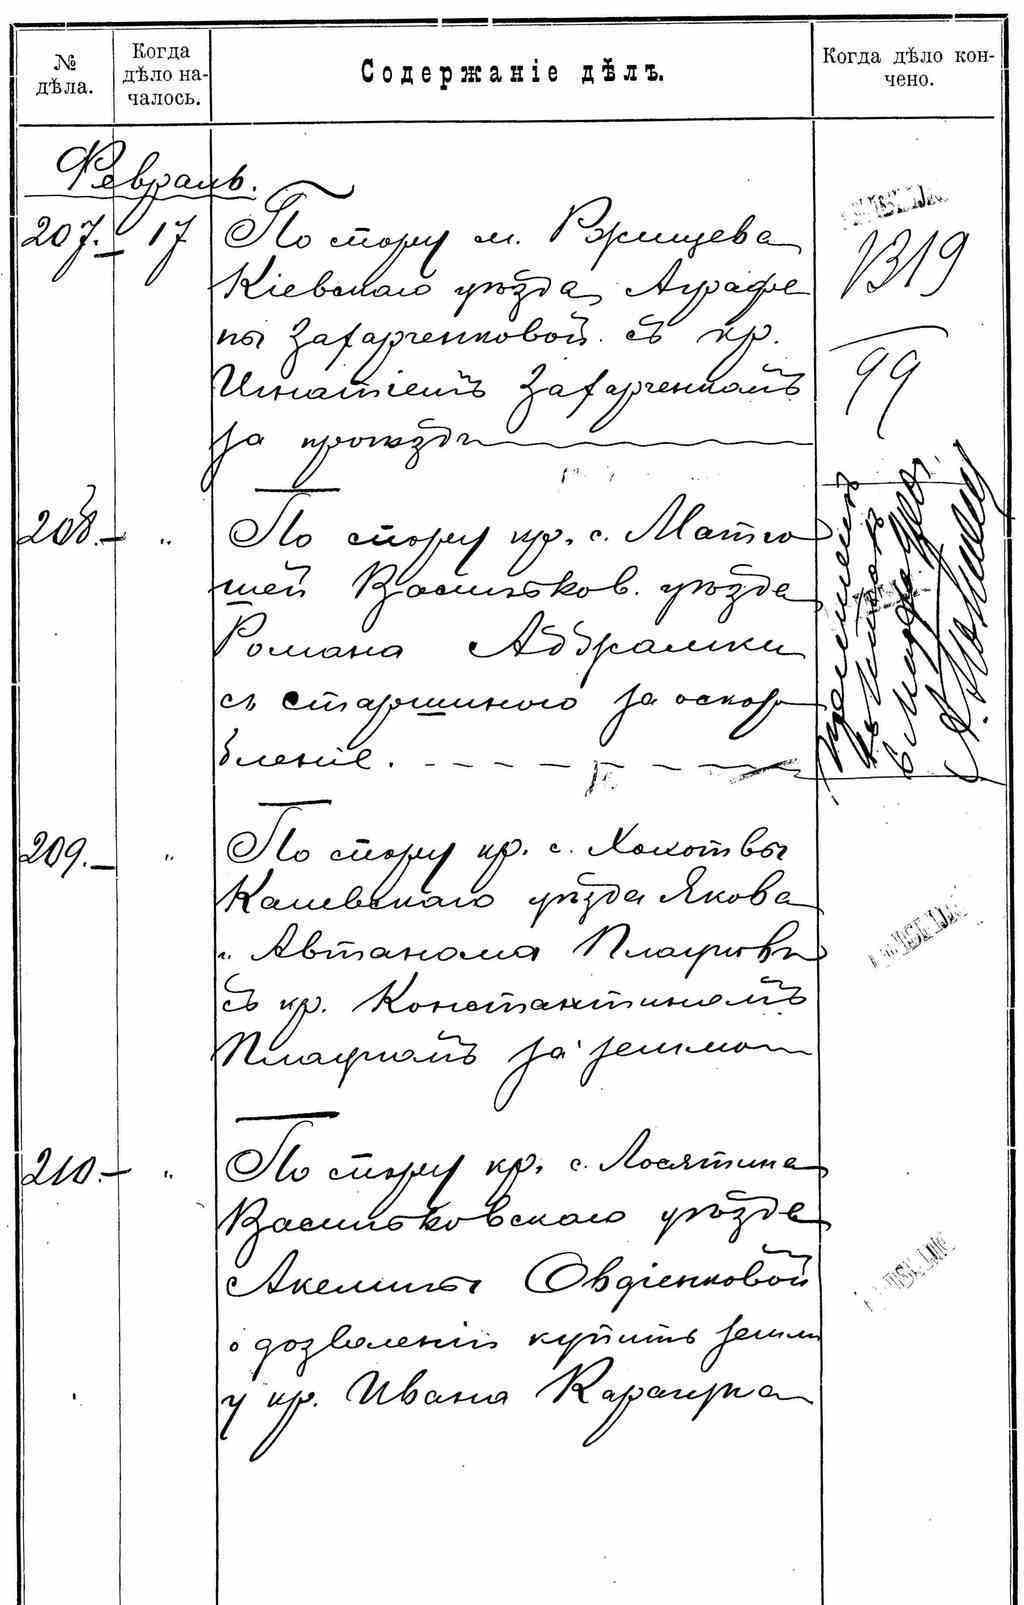 № дѣла.
Когда дѣло началось.
Содержаніе дѣлъ.
Когда дѣло кончено.
Февраль.
207. 17 По спору м. Ржищева
Кіевскаго уѣзда Аграфе
ны Захарченковой съ кр.
Игнатіемъ Захарченкомъ
за
1319
99
208. " По спору кр. с.
шей Васильков. уѣзда
Романа Абрамки
съ старшиною за оскор
бленіе.
209. " По спору кр. с. Хохотвы
Каневскаго уѣзда Якова
и Автанома
съ кр. Константиномъ
за землю
210. " По спору кр. с. Лосятина
Васильковскаго уѣзда
Акелины Овдіенковой
о дозволеніи купить земли
у кр. Ивана